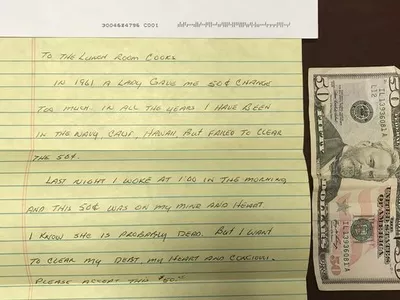 3004624796 C001
TO THE LUNCH ROOM COOKS
IN 1961 A LADY GAVE ME 50¢ CHANGE
TOO MUCH. IN ALL THE YEARS I HAVE BEEN
IN THE NAVY, CALIF, HAWAII, BUT FAILED TO CLEAR
THE 50¢.
LAST NIGHT I WOKE AT 1:00 IN THE MORNING
AND THIS 50¢ WAS ON MY MIND AND HEART
I KNOW SHE IS PROBABLY DEAD. BUT I WANT
TO CLEAR MY DEBT, MY HEART AND
PLEASE ACCEPT THIS
50
L12
FIFTY